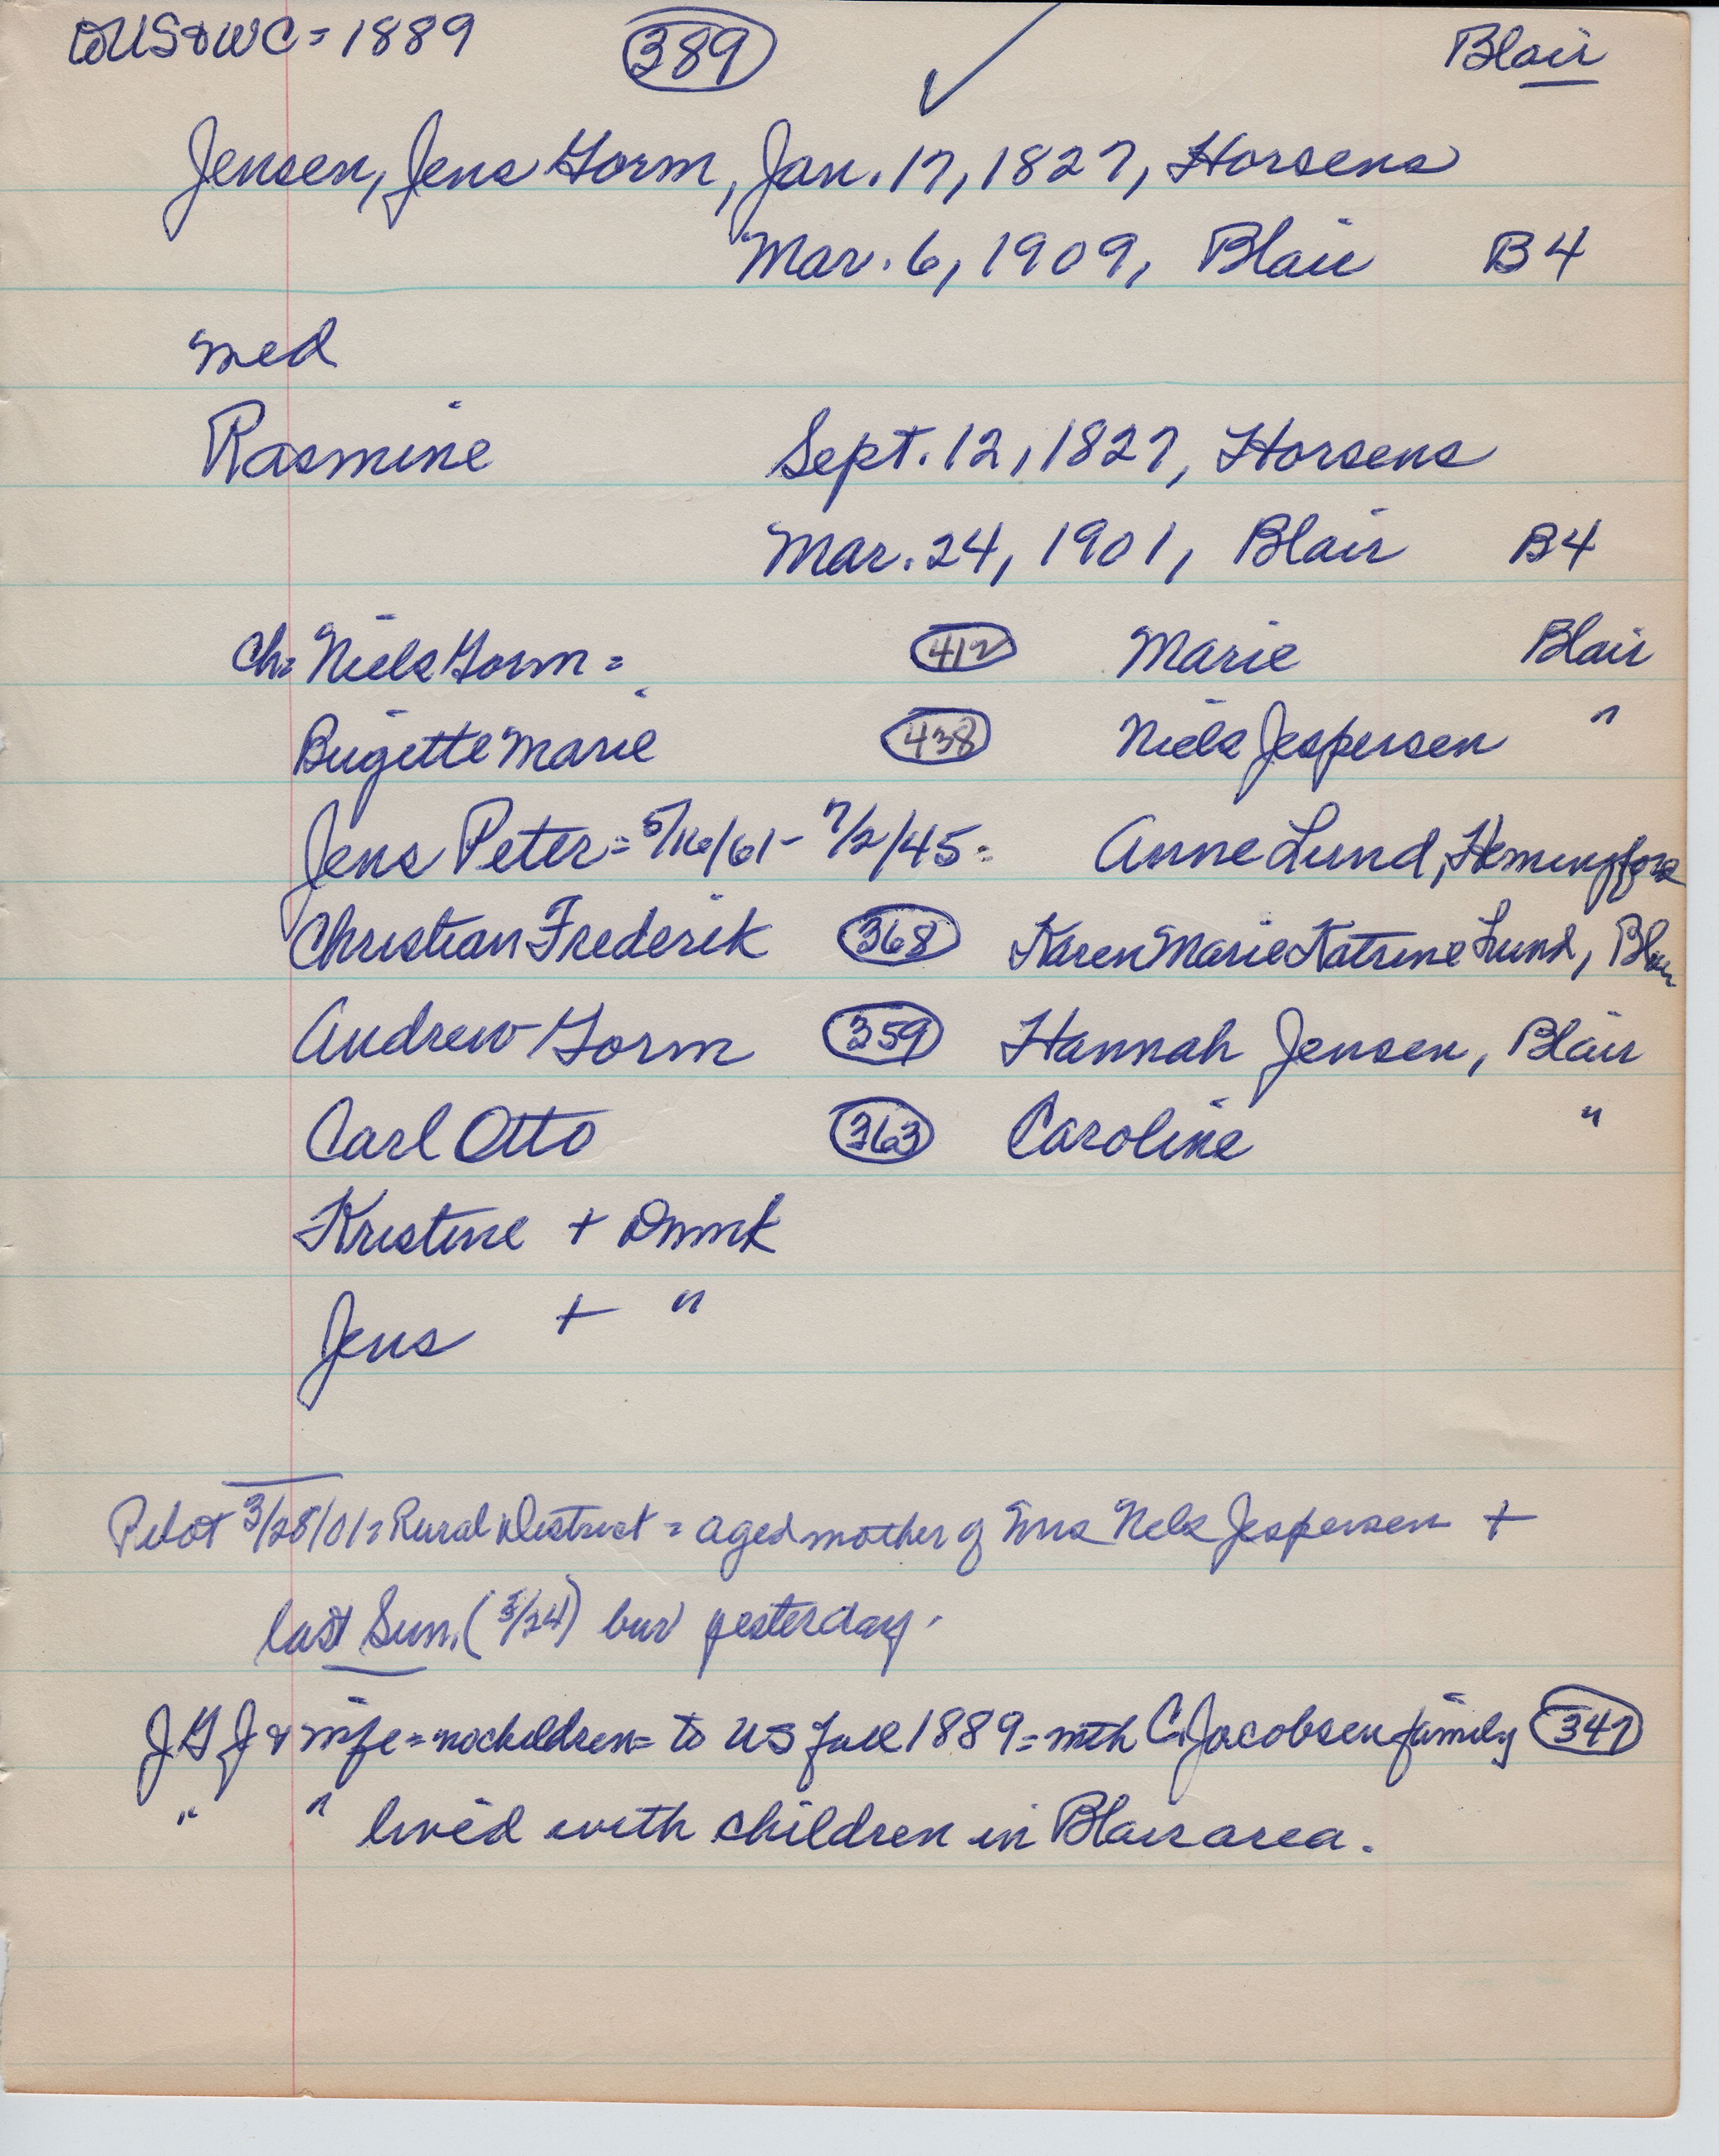 to US & WC = 1889 389 ✓ Blair
Jensen, Jens Gorm, Jan. 17, 1827, Horsens
Mar. 6, 1909, Blair B4
med
Rasmine Sept. 12, 1827, Horsens
Mar. 24, 1901, Blair B4
ch = Niels Gorm = 412 Marie Blair
Birgitte Marie 438 Niels Jespersen "
Jens Peter = 5/16/61 - 7/2/45 = Anne Lund, Hemingford
Christian Frederik 368 Karen Marie Katrine Lund, Blair
Andrew Gorm 359 Hannah Jensen, Blair
Carl Otto 363 Caroline "
Kristine + Dnmk
Jens + "
Pilot 3/28/01 = Rural District = aged mother of Mrs Nels Jespersen +
last Sun. (3/24) bur yesterday.
J G J & wife = no children = to US fall 1889 = with C. Jacobsen family 347
" " lived with children in Blair area.